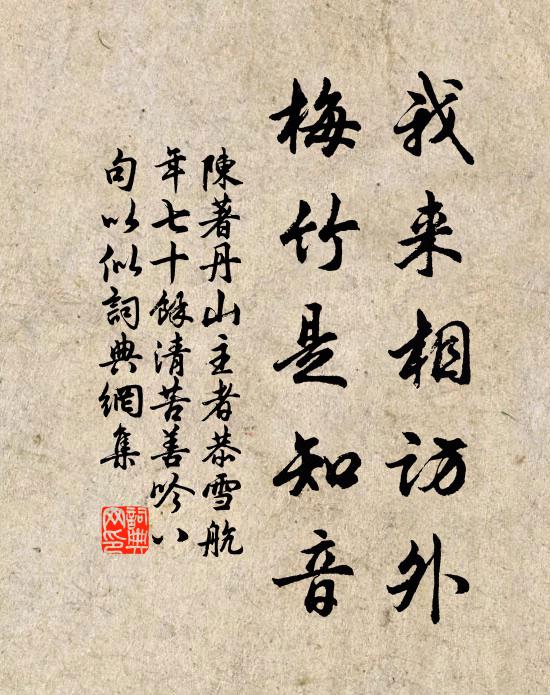 我来相訪外
梅竹是知音
陳著丹山主者恭雪航
年七十餘清苦善吟八
句以似詞典網集
詞典网印